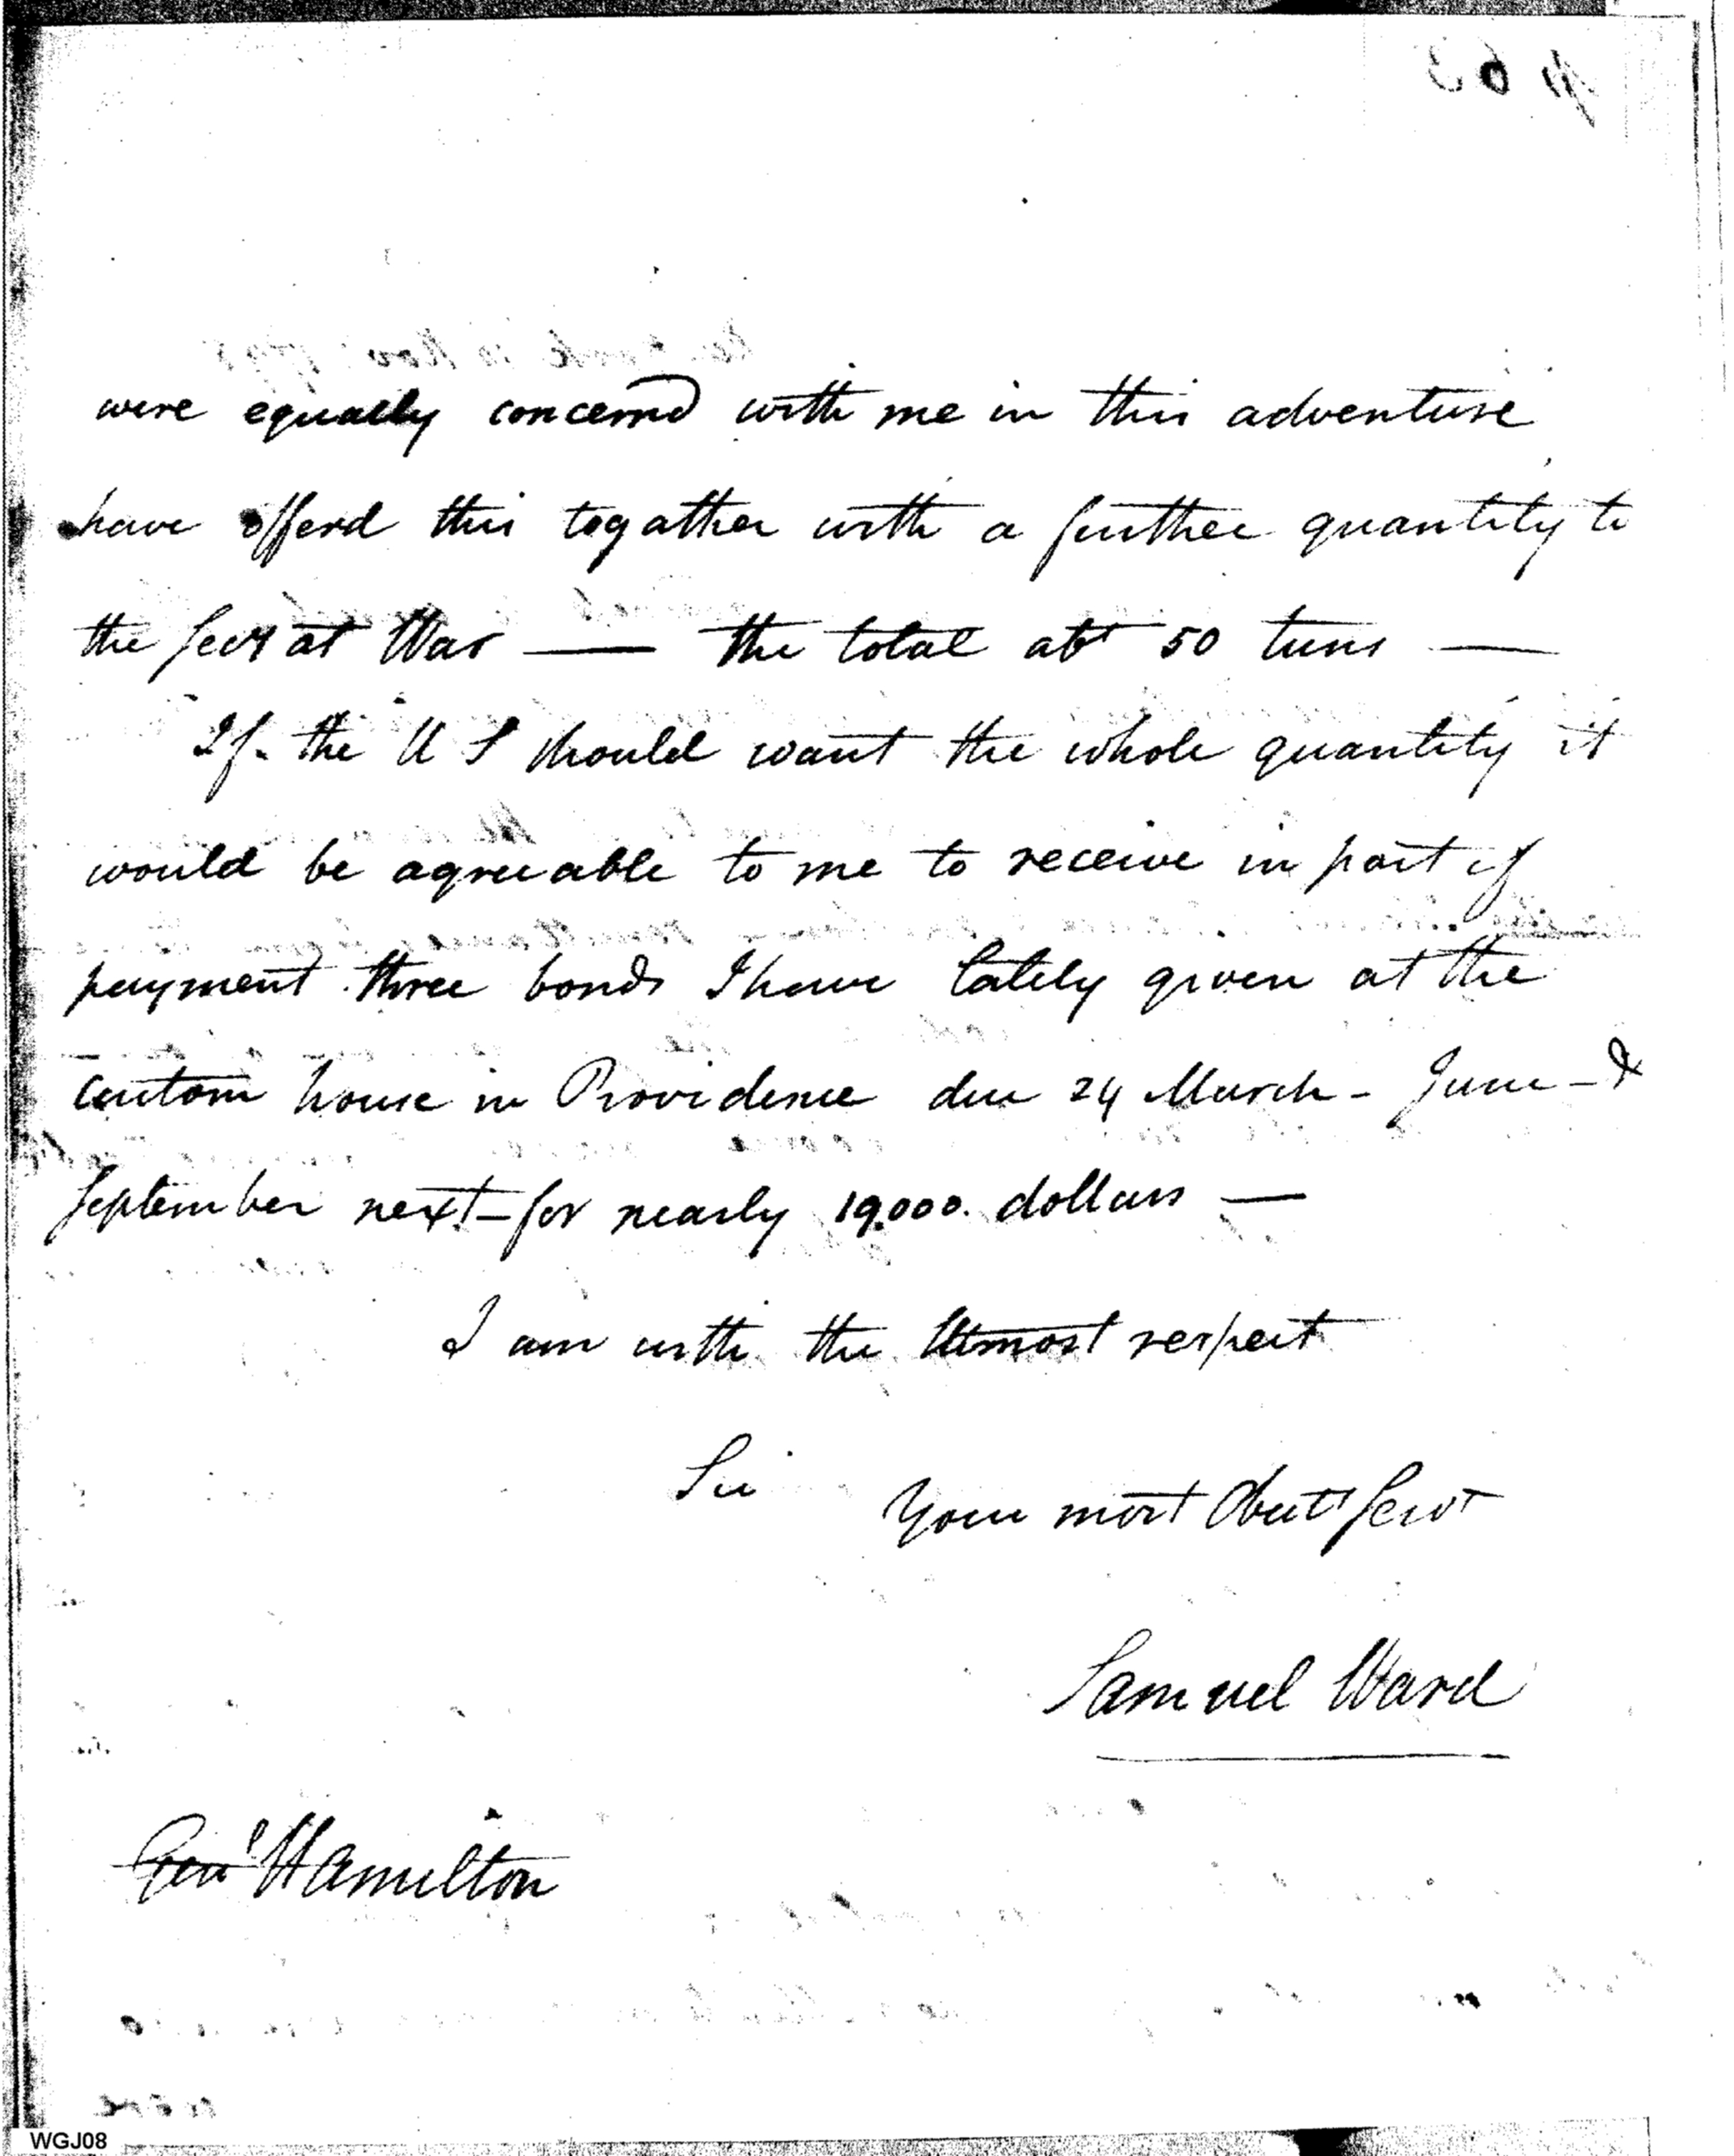 were equally concernd with me in this adventure
have offerd this togather with a further quantity to
the Secy at War — the total abt 50 tuns —
If the U S should want the whole quantity it
would be agreeable to me to receive in part of
payment three bonds I have lately given at the
custom house in Providence due 24 March - June - &
September next - for nearly 19.000. dollars —
I am with the Utmost respect
Sir
Your most Obedt Servt
Samuel Ward
Genl Hamilton
WGJ08